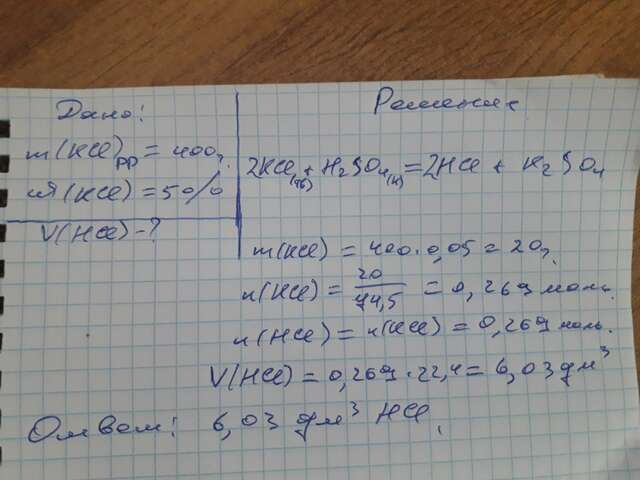 Дано:
m(KCl)рр = 400г.
ω(KCl) = 5%
V(HCl) - ?
Решение
2KCl(тв) + H2SO4(к) = 2HCl + K2SO4
m(KCl) = 400 · 0,05 = 20г.
n(KCl) = 20/74,5 = 0,269 моль.
n(HCl) = n(KCl) = 0,269 моль.
V(HCl) = 0,269 · 22,4 = 6,03 дм³
Ответ: 6,03 дм³ HCl.